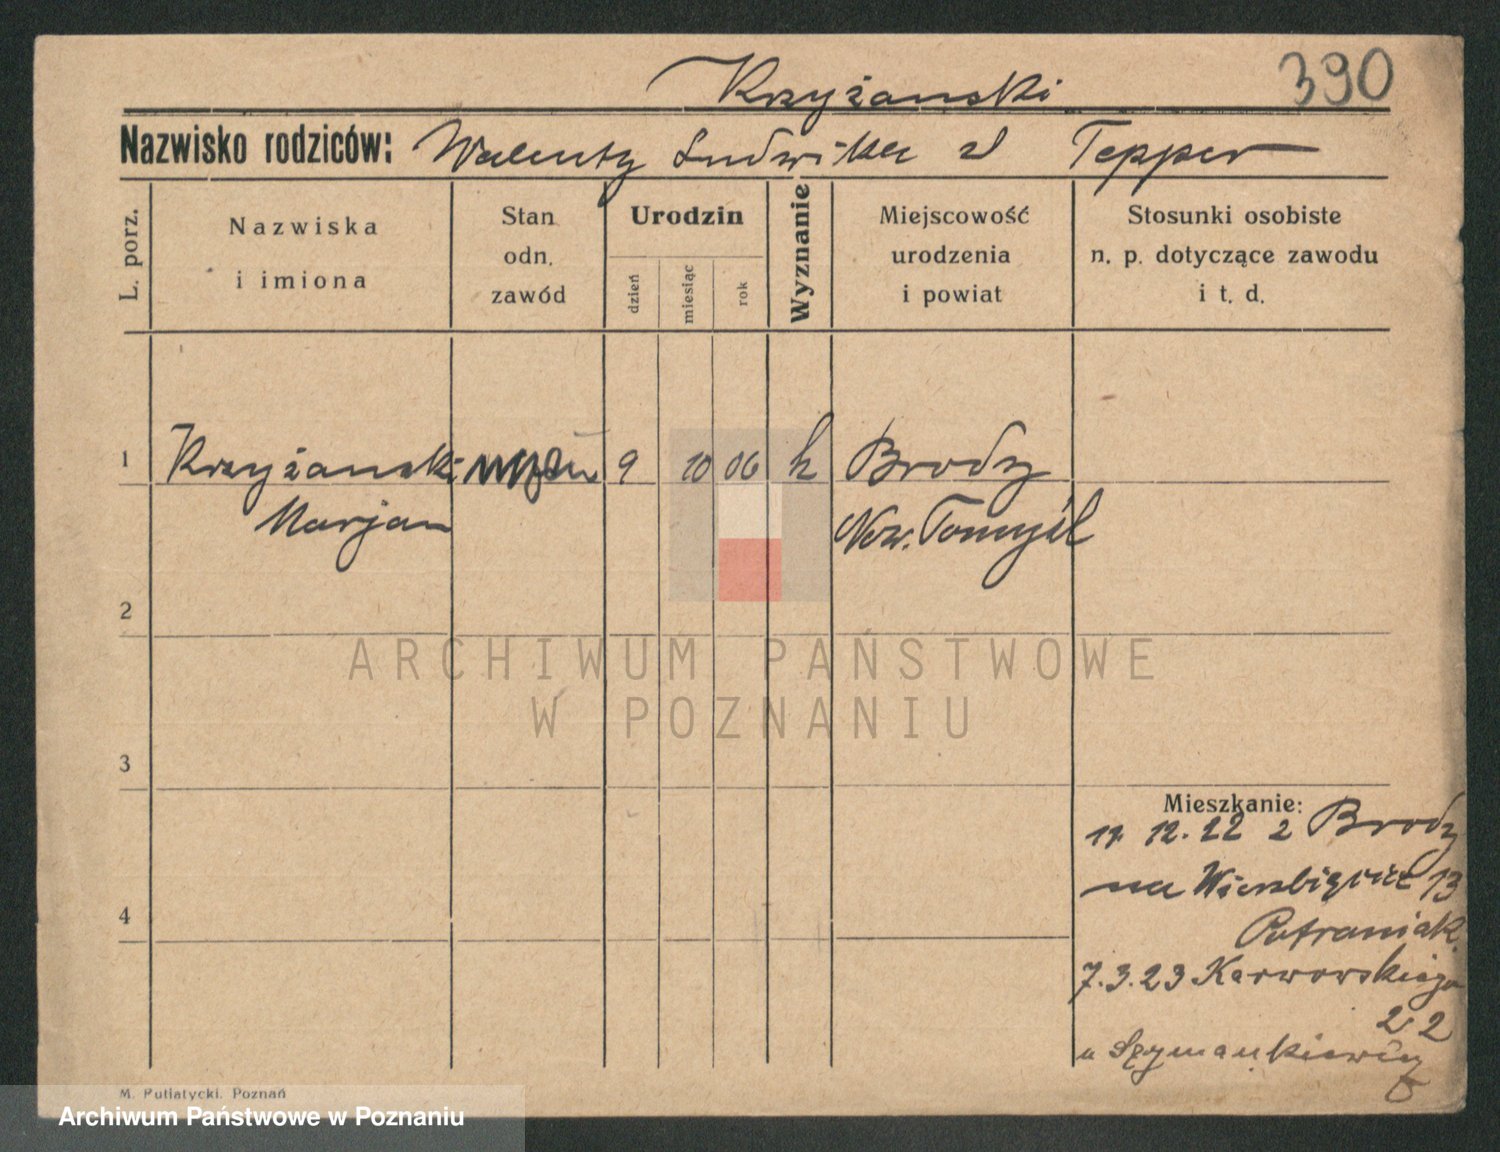 390
Krzyżanski
Nazwisko rodziców: Walenty Ludwika zd Tepper
L. porz.
Nazwiska
i imiona
Stan
odn.
zawód
Urodzin
dzień
miesiąc
rok
Wyznanie
Miejscowość
urodzenia
i powiat
Stosunki osobiste
n. p. dotyczące zawodu
i t. d.
1 Krzyżanski 9 10 06 k Brody
Marjan Now. Tomyśl
2
3
4
Mieszkanie:
17. 12. 22 z Brody
na Wierzbięcice 13
Putraniak
7.3.23 Karwowskiego
22
u Szymankiewicz
M. Putiatycki. Poznań
ARCHIWUM PAŃSTWOWE
W POZNANIU
Archiwum Państwowe w Poznaniu